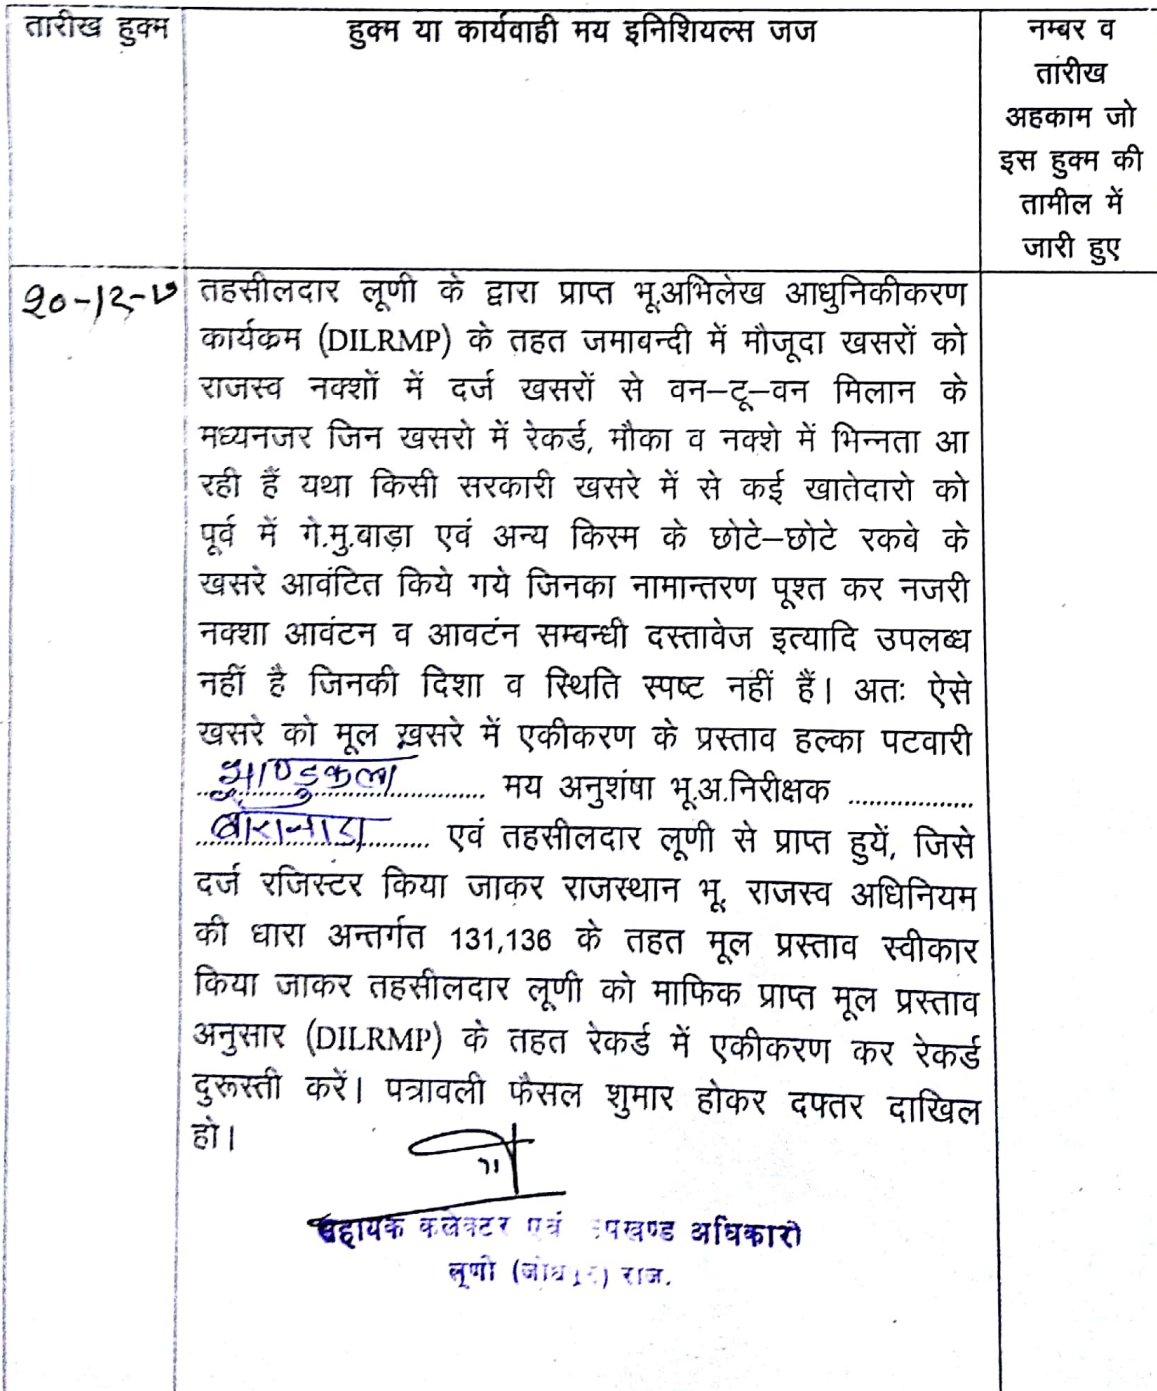 तारीख हुक्म
हुक्म या कार्यवाही मय इनिशियल्स जज
नम्बर व
तारीख
अहकाम जो
इस हुक्म की
तामील में
जारी हुए
20-12-
तहसीलदार लूणी के द्वारा प्राप्त भू.अभिलेख आधुनिकीकरण
कार्यक्रम (DILRMP) के तहत जमाबन्दी में मौजूदा खसरों को
राजस्व नक्शों में दर्ज खसरों से वन–टू–वन मिलान के
मध्यनजर जिन खसरो में रेकर्ड, मौका व नक्शे में भिन्नता आ
रही हैं यथा किसी सरकारी खसरे में से कई खातेदारो को
पूर्व में गे.मु.बाड़ा एवं अन्य किस्म के छोटे–छोटे रकबे के
खसरे आवंटित किये गये जिनका नामान्तरण पूश्त कर नजरी
नक्शा आवंटन व आवटंन सम्बन्धी दस्तावेज इत्यादि उपलब्ध
नहीं है जिनकी दिशा व स्थिति स्पष्ट नहीं हैं। अतः ऐसे
खसरे को मूल ख़सरे में एकीकरण के प्रस्ताव हल्का पटवारी
भाण्डुकला मय अनुशंषा भू.अ.निरीक्षक ..................
बोरानाडा एवं तहसीलदार लूणी से प्राप्त हुयें, जिसे
दर्ज रजिस्टर किया जाकर राजस्थान भू. राजस्व अधिनियम
की धारा अन्तर्गत 131,136 के तहत मूल प्रस्ताव स्वीकार
किया जाकर तहसीलदार लूणी को माफिक प्राप्त मूल प्रस्ताव
अनुसार (DILRMP) के तहत रेकर्ड में एकीकरण कर रेकर्ड
दुरूस्ती करें। पत्रावली फैसल शुमार होकर दफ्तर दाखिल
हो।
सहायक कलेक्टर एवं उपखण्ड अधिकारी
लूणी (जोधपुर) राज.